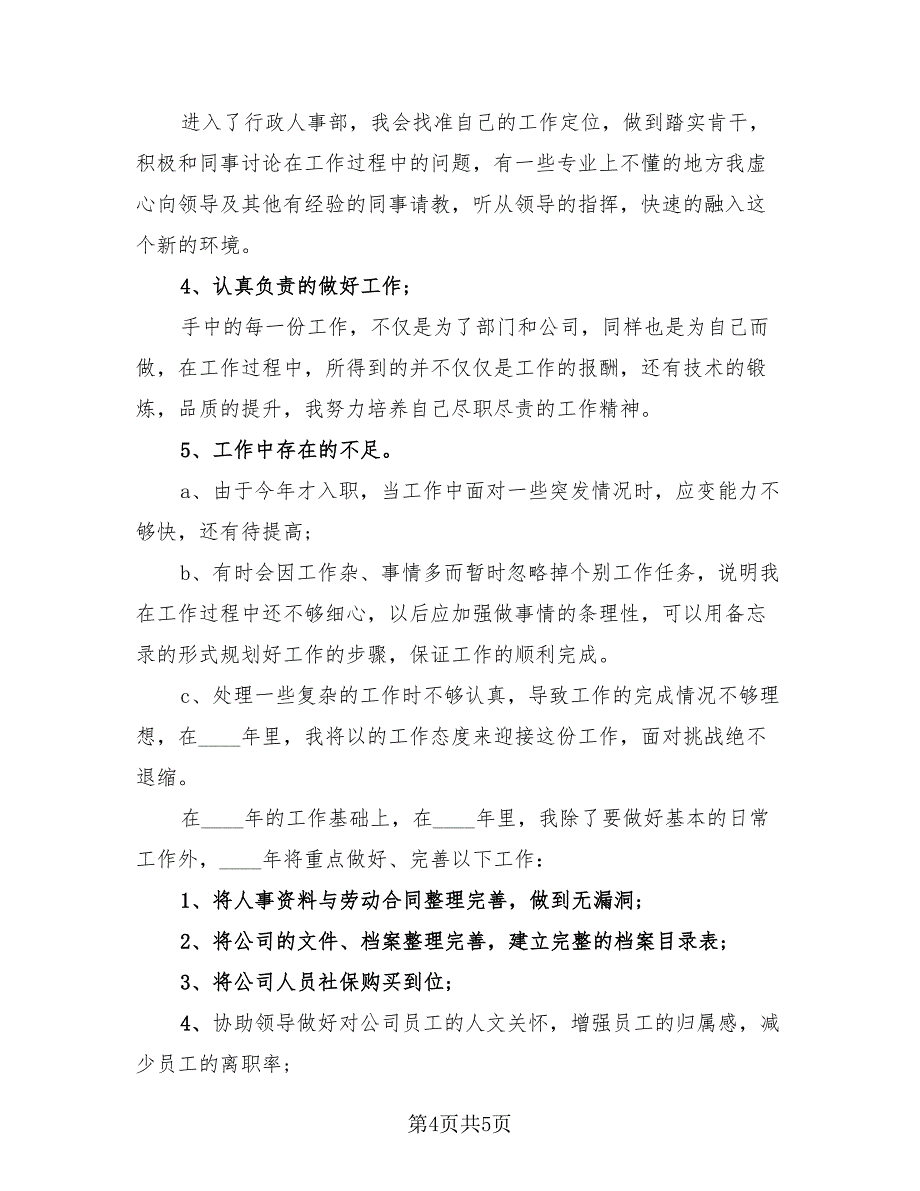 进入了行政人事部，我会找准自己的工作定位，做到踏实肯干，
积极和同事讨论在工作过程中的问题，有一些专业上不懂的地方我虚
心向领导及其他有经验的同事请教，听从领导的指挥，快速的融入这
个新的环境。
4、认真负责的做好工作;
手中的每一份工作，不仅是为了部门和公司，同样也是为自己而
做，在工作过程中，所得到的并不仅仅是工作的报酬，还有技术的锻
炼，品质的提升，我努力培养自己尽职尽责的工作精神。
5、工作中存在的不足。
a、由于今年才入职，当工作中面对一些突发情况时，应变能力不
够快，还有待提高;
b、有时会因工作杂、事情多而暂时忽略掉个别工作任务，说明我
在工作过程中还不够细心，以后应加强做事情的条理性，可以用备忘
录的形式规划好工作的步骤，保证工作的顺利完成。
c、处理一些复杂的工作时不够认真，导致工作的完成情况不够理
想，在____年里，我将以的工作态度来迎接这份工作，面对挑战绝不
退缩。
在____年的工作基础上，在____年里，我除了要做好基本的日常
工作外，____年将重点做好、完善以下工作：
1、将人事资料与劳动合同整理完善，做到无漏洞;
2、将公司的文件、档案整理完善，建立完整的档案目录表;
3、将公司人员社保购买到位;
4、协助领导做好对公司员工的人文关怀，增强员工的归属感，减
少员工的离职率;
第4页共5页